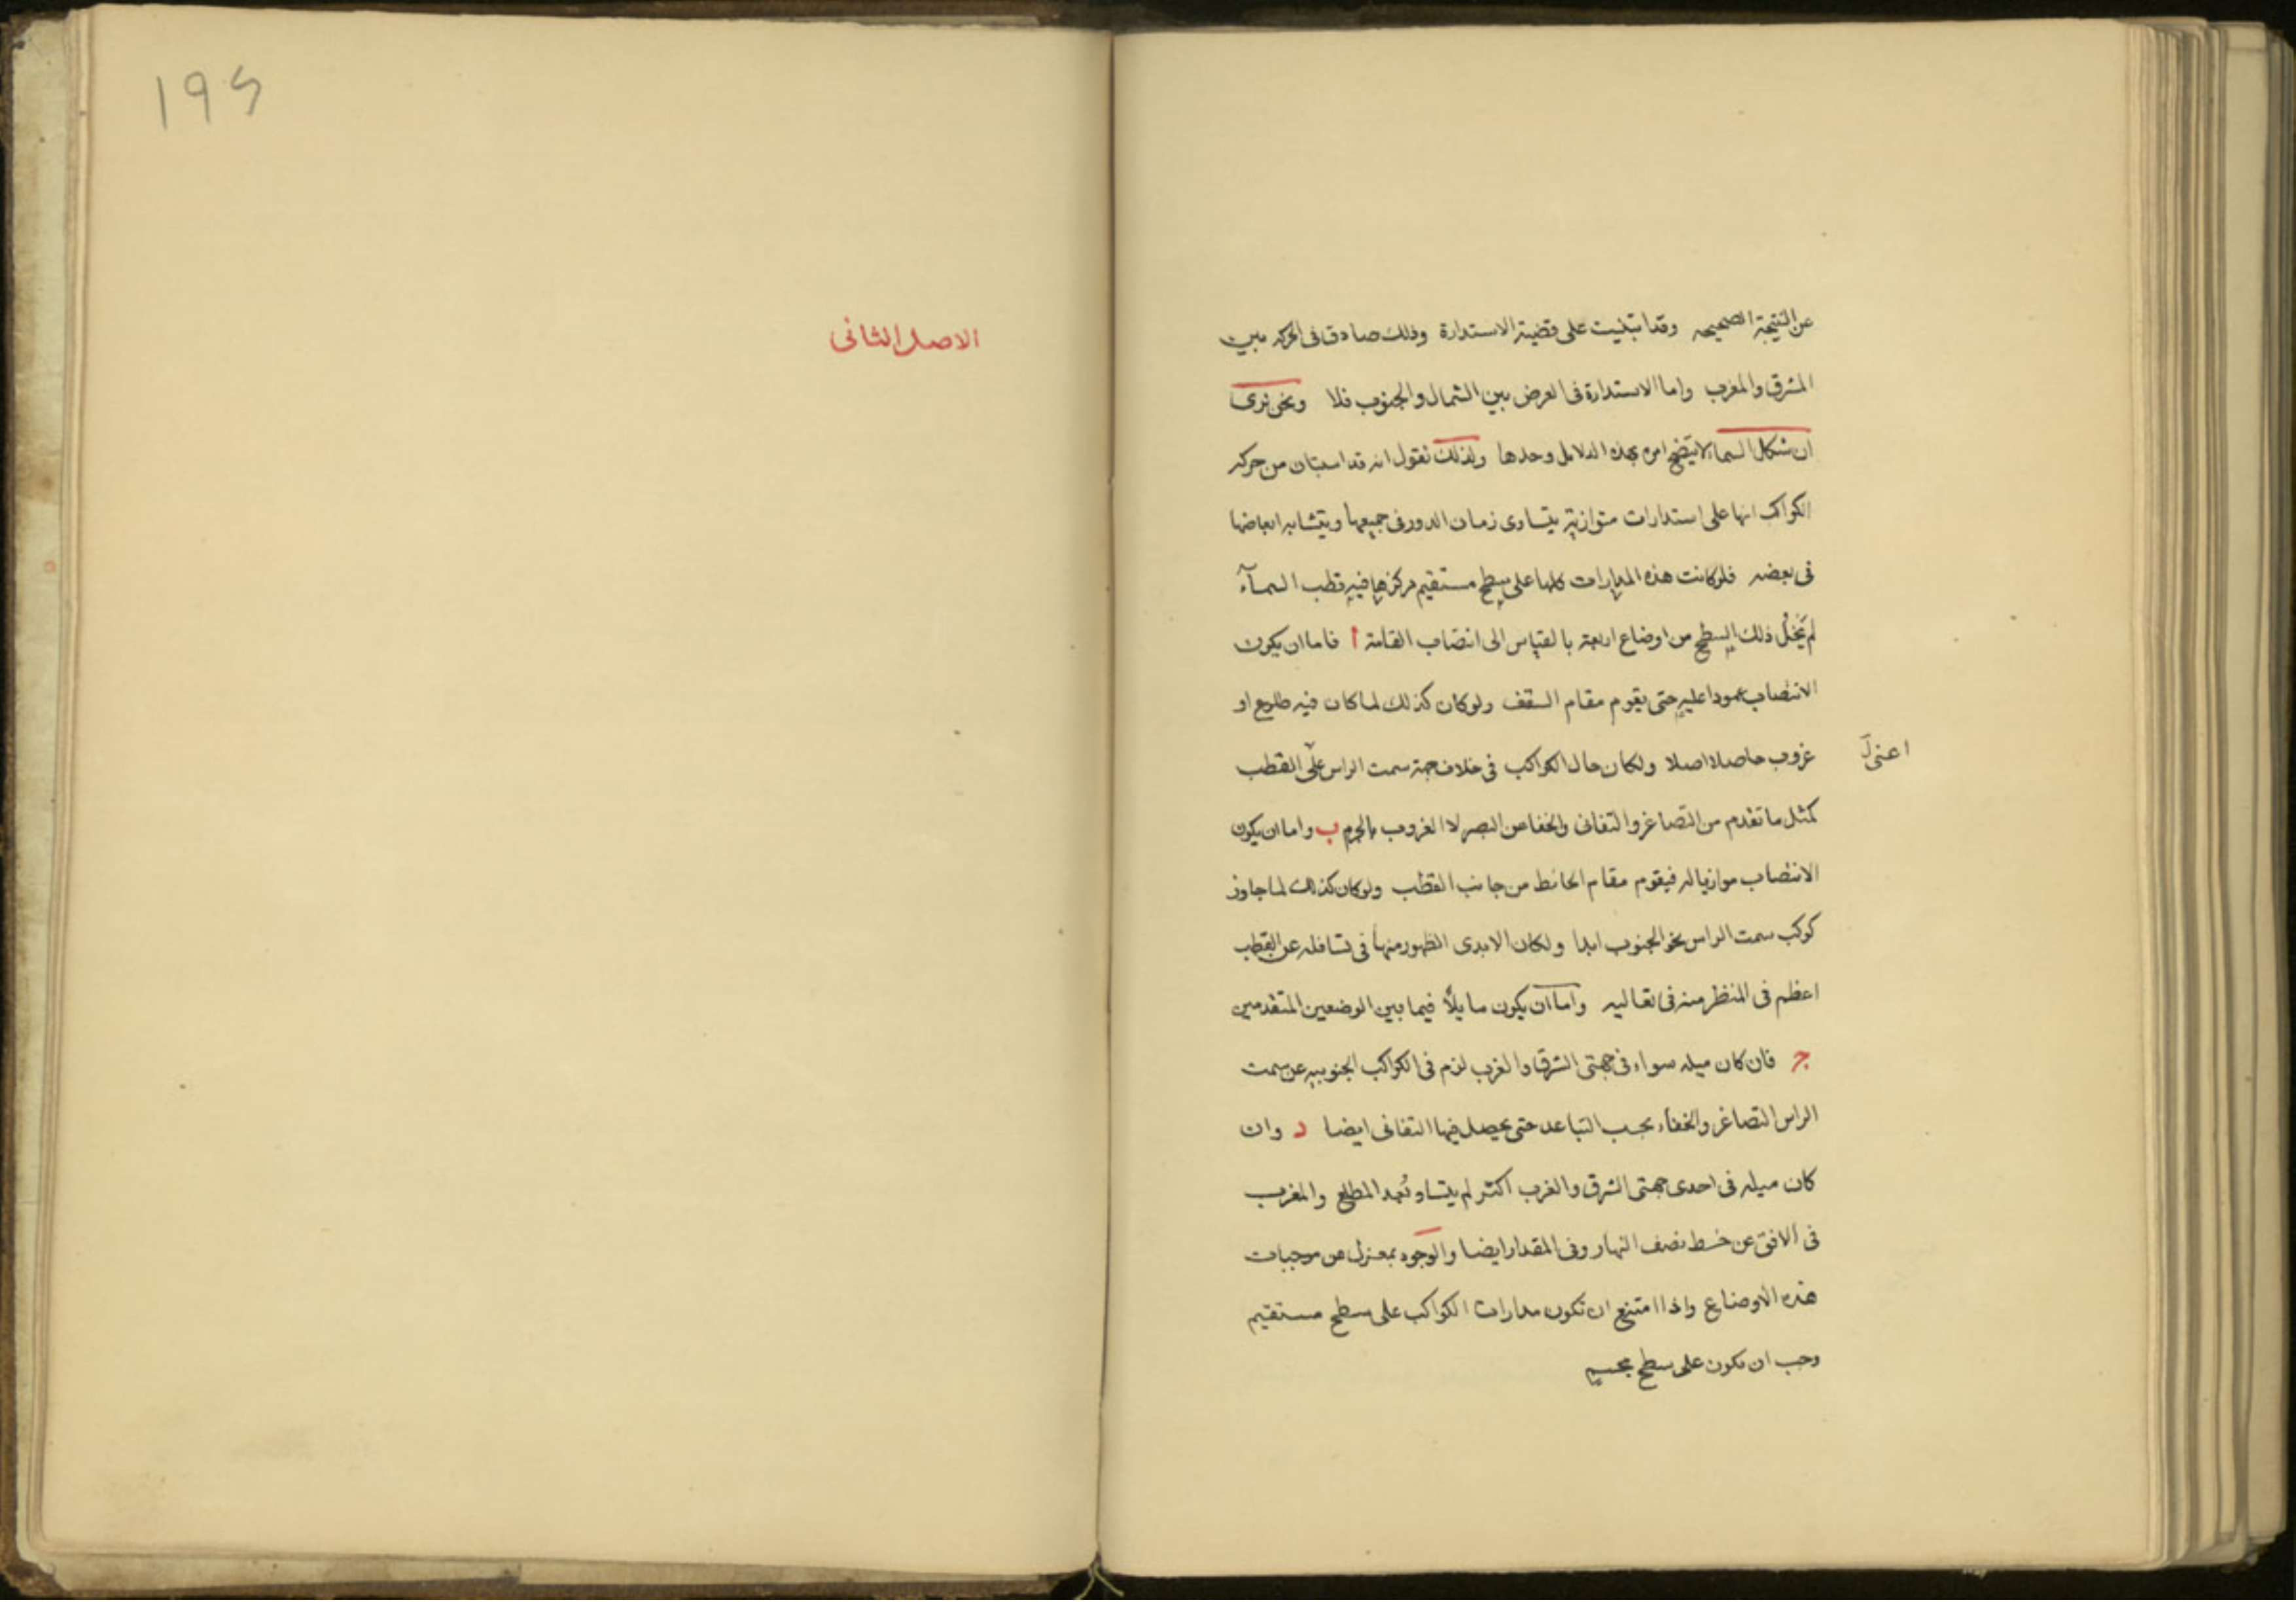 عن النتيجة الصحيحه وقد ابتنيت على قضية الاستدارة وذلك صادق فى الحركه بين
المشرق والمغرب واما الاستدارة فى العرض بين الشمال والجنوب فلا ونحن نرى
ان شكل السماء لا يتضح امره بهذه الدلايل وحدها ولذلك نقول انه قد استبان من حركه
الكواكب انها على استدارات متوازية يتساوى زمان الدور فى جميعها ويتشابه ابعاضها
فى بعضه فلو كانت هذه المدارات كلها على سطح مستقيم مركزها فيه قطب السمآء
لم يَخلُ ذلك السطح من اوضاع اربعة بالقياس الى انتصاب القامة ا فاما ان يكون
الانتصاب عمودا عليه حتى يقوم مقام السقف ولو كان كذلك لما كان فيه طلوع او
غروب حاصلا اصلا ولكان حال الكواكب فى خلاف جهة سمت الراس على القطب
اعنى
كمثل ما تقدم من التصاغر والتفانى والخفا عن البصر لا الغروب بالجرم ب واما ان يكون
الانتصاب موازيا له فيقوم مقام الحائط من جانب القطب ولو كان كذلك لما جاوز
كوكب سمت الراس نحو الجنوب ابدا ولكان الابدى الظهور منها فى تسافله عن القطب
اعظم فى المنظر منه فى تعاليه واما ان يكون مايلًا فيما بين الوضعين المتقدمين
ج فان كان ميله سواء فى جهتى الشرق والغرب لزم فى الكواكب الجنوبيه عن سمت
الراس التصاغر والخفاء بحسب التباعد حتى يحصل فيها التفانى ايضا د وان
كان ميله فى احدى جهتى الشرق والغرب اكثر لم يتساو بُعد المطلع والمغرب
فى الافق عن خط نصف النهار وفى المقدار ايضا والوجود بمعزل عن موجبات
هذه الاوضاع واذا امتنع ان تكون مدارات الكواكب على سطح مستقيم
وجب ان تكون على سطح مجسم
١٩٤
الاصل الثانى